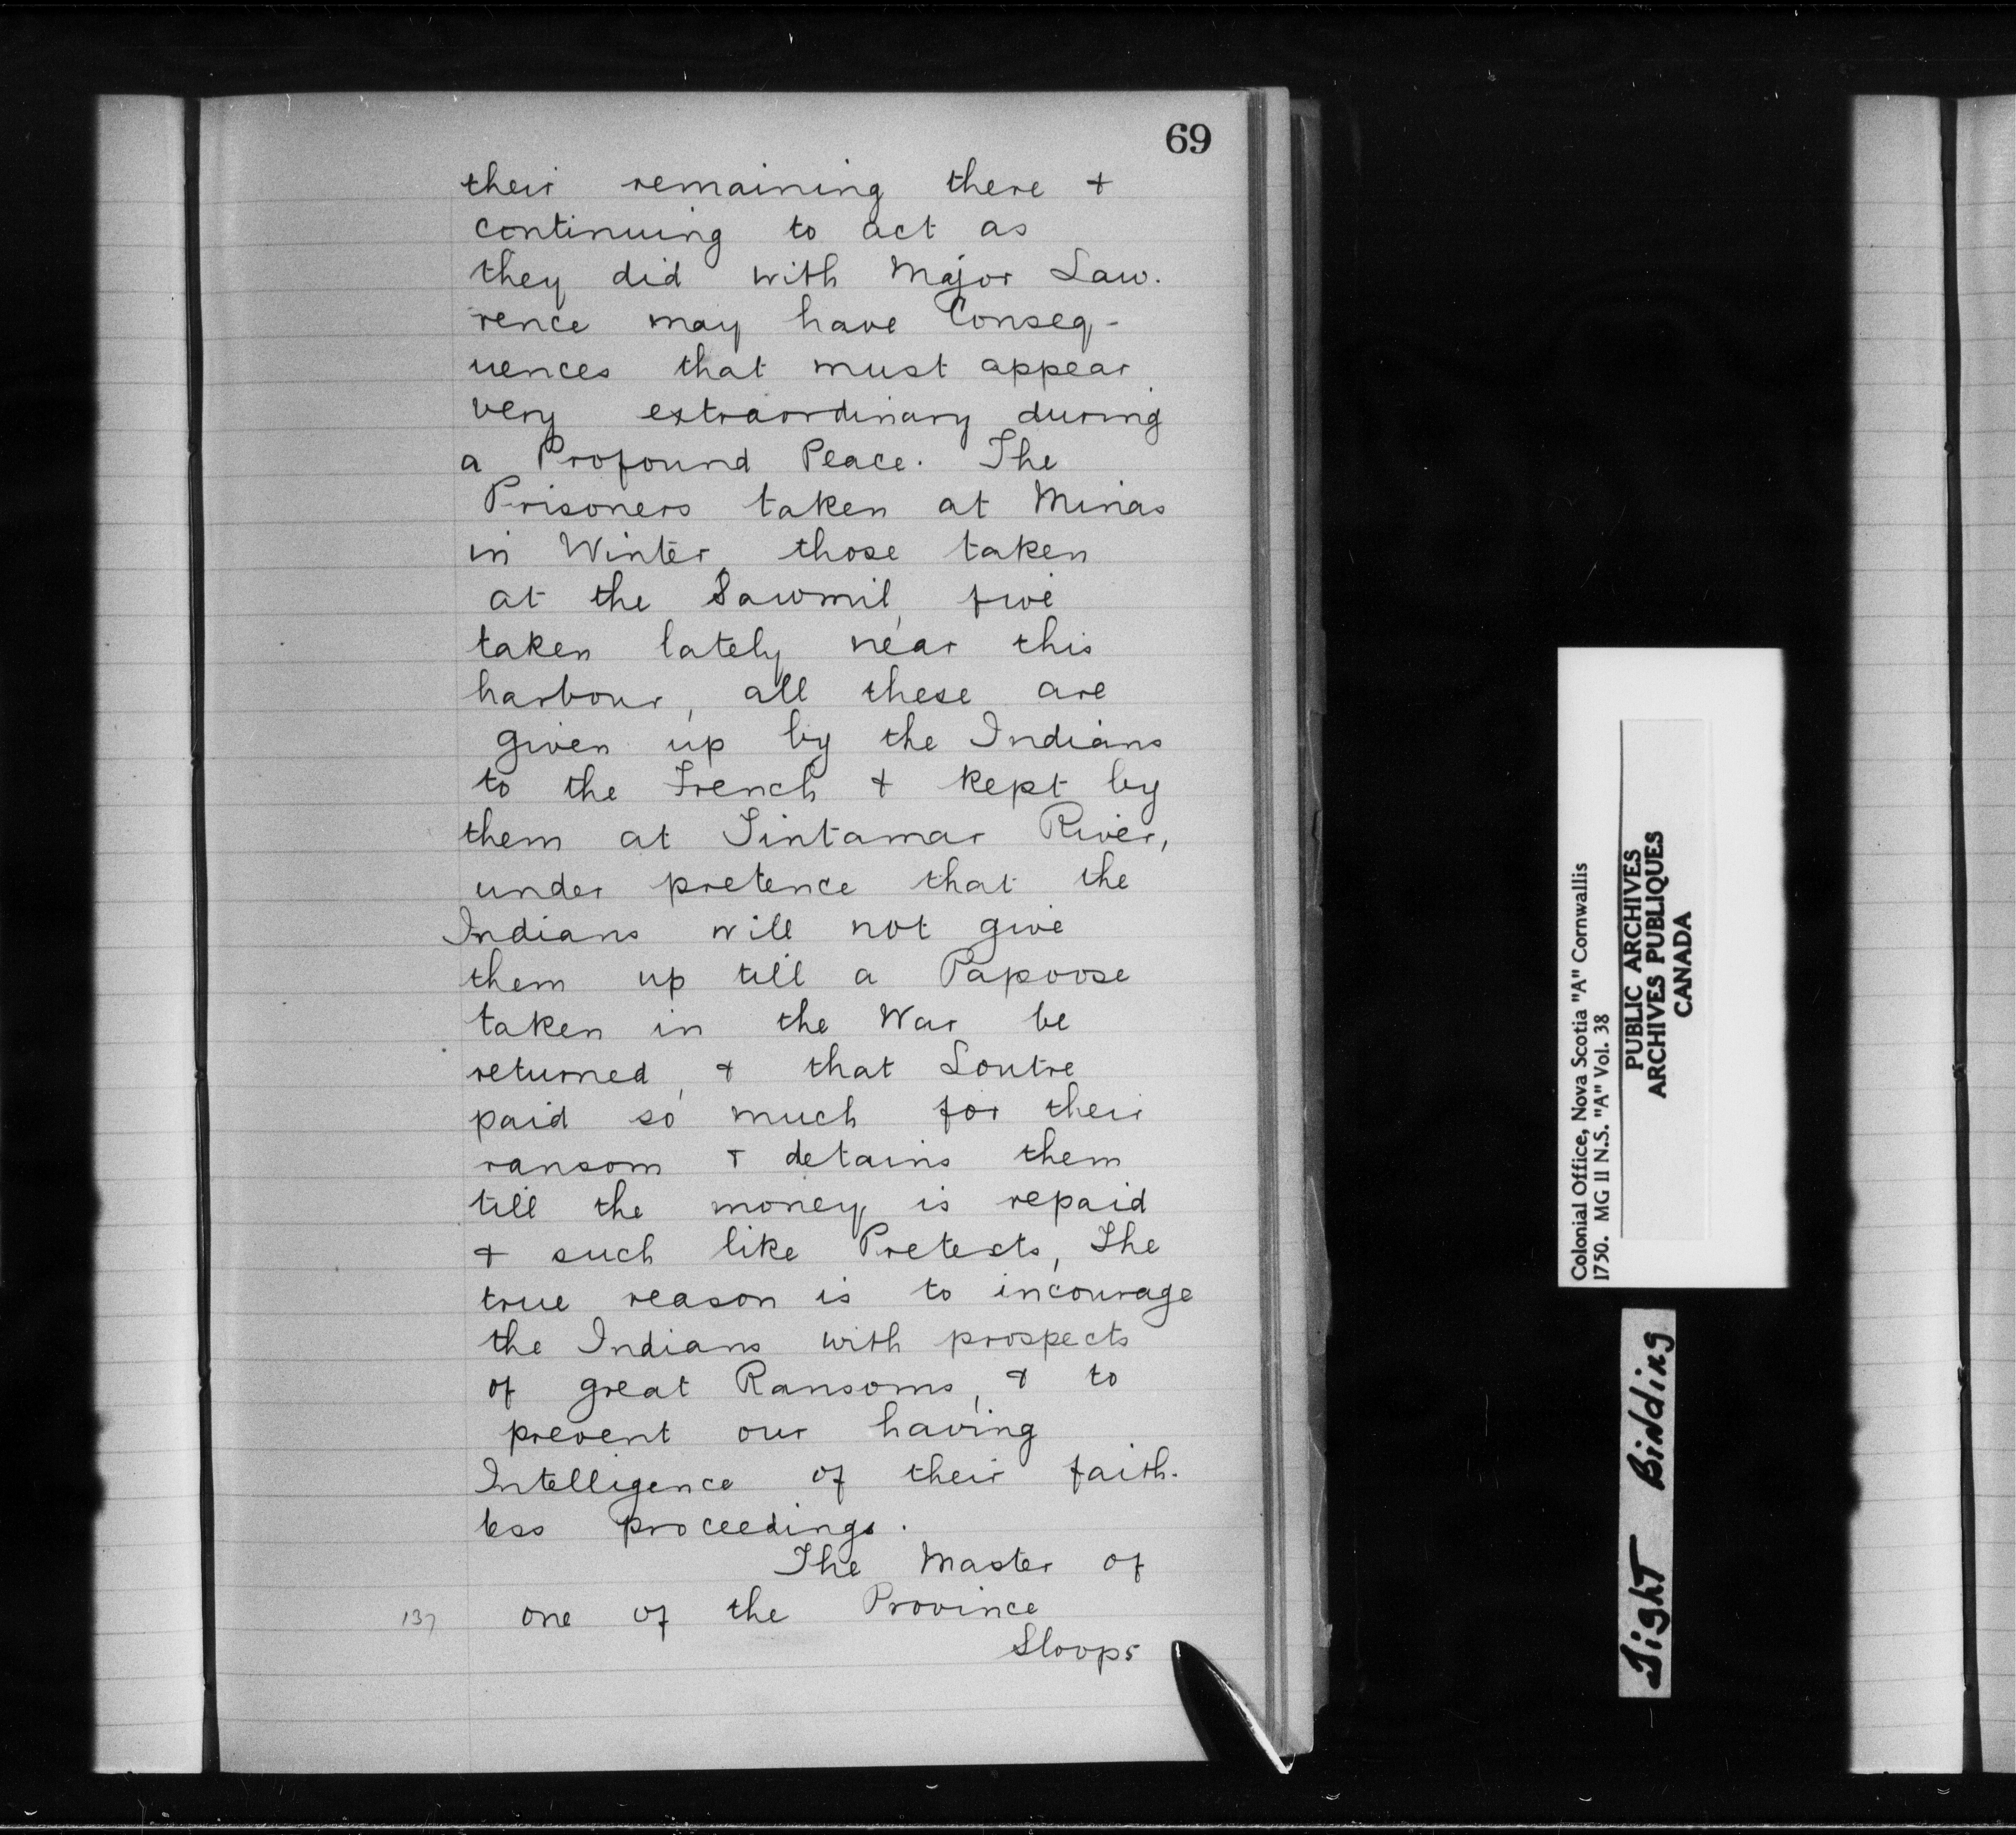 69
their remaining there &
continuing to act as
they did with Major Law.
rence may have Conseq-
uences that must appear
very extraordinary during
a Profound Peace. The
Prisoners taken at Minas
in Winter, those taken
at the Sawmil, five
taken lately near this
harbour, all these are
given up by the Indians
to the French & kept by
them at Tintamar River,
under pretence that the
Indians will not give
them up till a Papoose
taken in the War be
returned, & that Loutre
paid so much for their
ransom & detains them
till the money is repaid
& such like Pretexts, The
true reason is to incourage
the Indians with prospects
of great Ransoms, & to
prevent our having
Intelligence of their faith-
less proceedings.
The Master of
137 one of the Province
Sloops
Colonial Office, Nova Scotia "A" Cornwallis
1750. MG II N.S. "A" Vol. 38
PUBLIC ARCHIVES
ARCHIVES PUBLIQUES
CANADA
Tight Binding